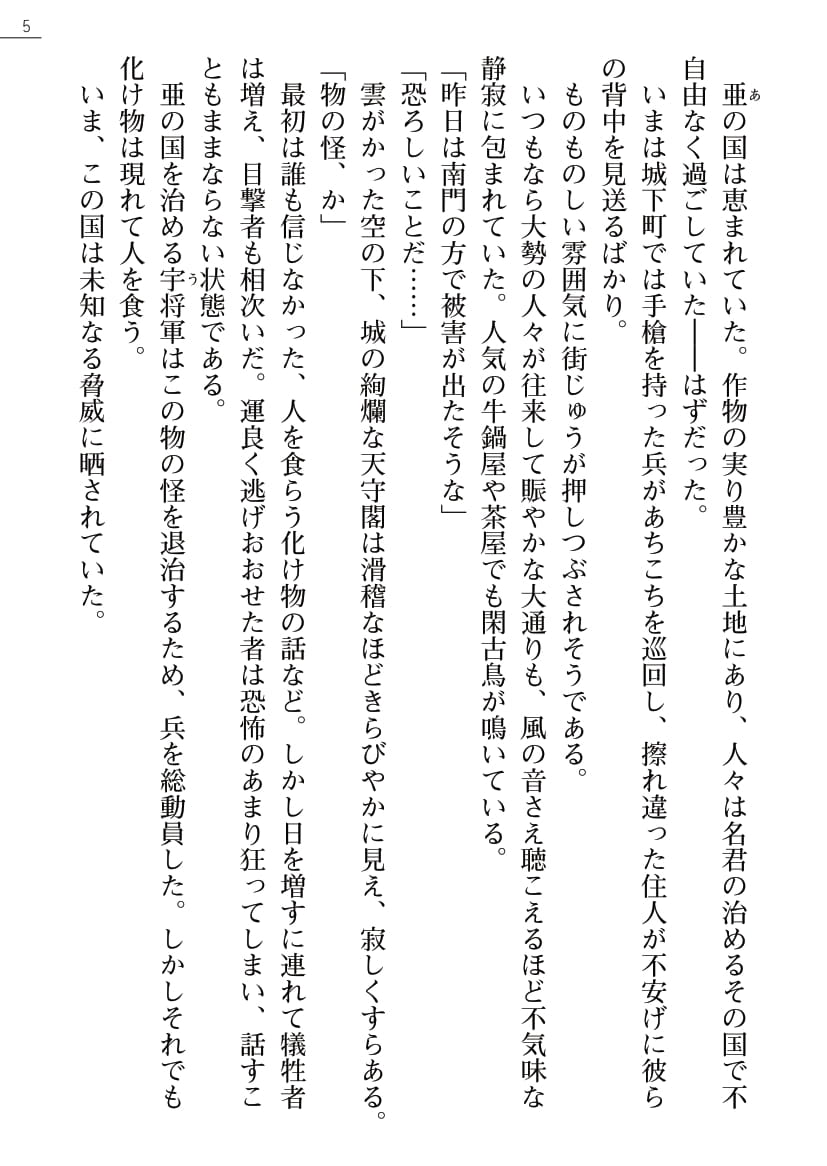 5
亜の国は恵まれていた。作物の実り豊かな土地にあり、人々は名君の治めるその国で不
自由なく過ごしていた――はずだった。
いまは城下町では手槍を持った兵があちこちを巡回し、擦れ違った住人が不安げに彼ら
の背中を見送るばかり。
ものものしい雰囲気に街じゅうが押しつぶされそうである。
いつもなら大勢の人々が往来して賑やかな大通りも、風の音さえ聴こえるほど不気味な
静寂に包まれていた。人気の牛鍋屋や茶屋でも閑古鳥が鳴いている。
「昨日は南門の方で被害が出たそうな」
「恐ろしいことだ……」
雲がかった空の下、城の絢爛な天守閣は滑稽なほどきらびやかに見え、寂しくすらある。
「物の怪、か」
最初は誰も信じなかった、人を食らう化け物の話など。しかし日を増すに連れて犠牲者
は増え、目撃者も相次いだ。運良く逃げおおせた者は恐怖のあまり狂ってしまい、話すこ
ともままならない状態である。
亜の国を治める宇将軍はこの物の怪を退治するため、兵を総動員した。しかしそれでも
化け物は現れて人を食う。
いま、この国は未知なる脅威に晒されていた。